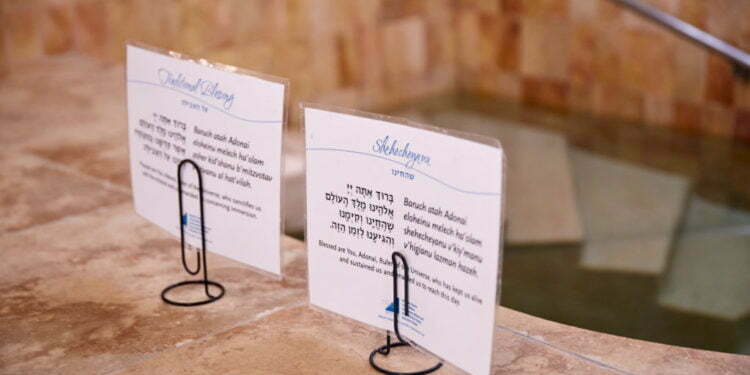 Traditional Blessing
על הטבילה
בָּרוּךְ אַתָּה יְיָ
אֱלֹהֵינוּ מֶלֶךְ הָעוֹלָם
Baruch atah Adonai
eloheinu melech ha'olam
asher kid'shanu b'mitzvotav
al hat'vilah.
Universe, who sanctifies us
concerning immersion.
Shehecheyanu
שהחינו
בָּרוּךְ אַתָּה יְיָ
אֱלֹהֵינוּ מֶלֶךְ הָעוֹלָם
שֶׁהֶחֱיָנוּ וְקִיְּמָנוּ
וְהִגִּיעָנוּ לַזְּמַן הַזֶּה.
Baruch atah Adonai
eloheinu melech ha'olam
shehecheyanu v'kiy'manu
v'higianu lazman hazeh.
Blessed are You, Adonai, Ruler of the Universe, who has kept us alive
and sustained us and us to reach this day.